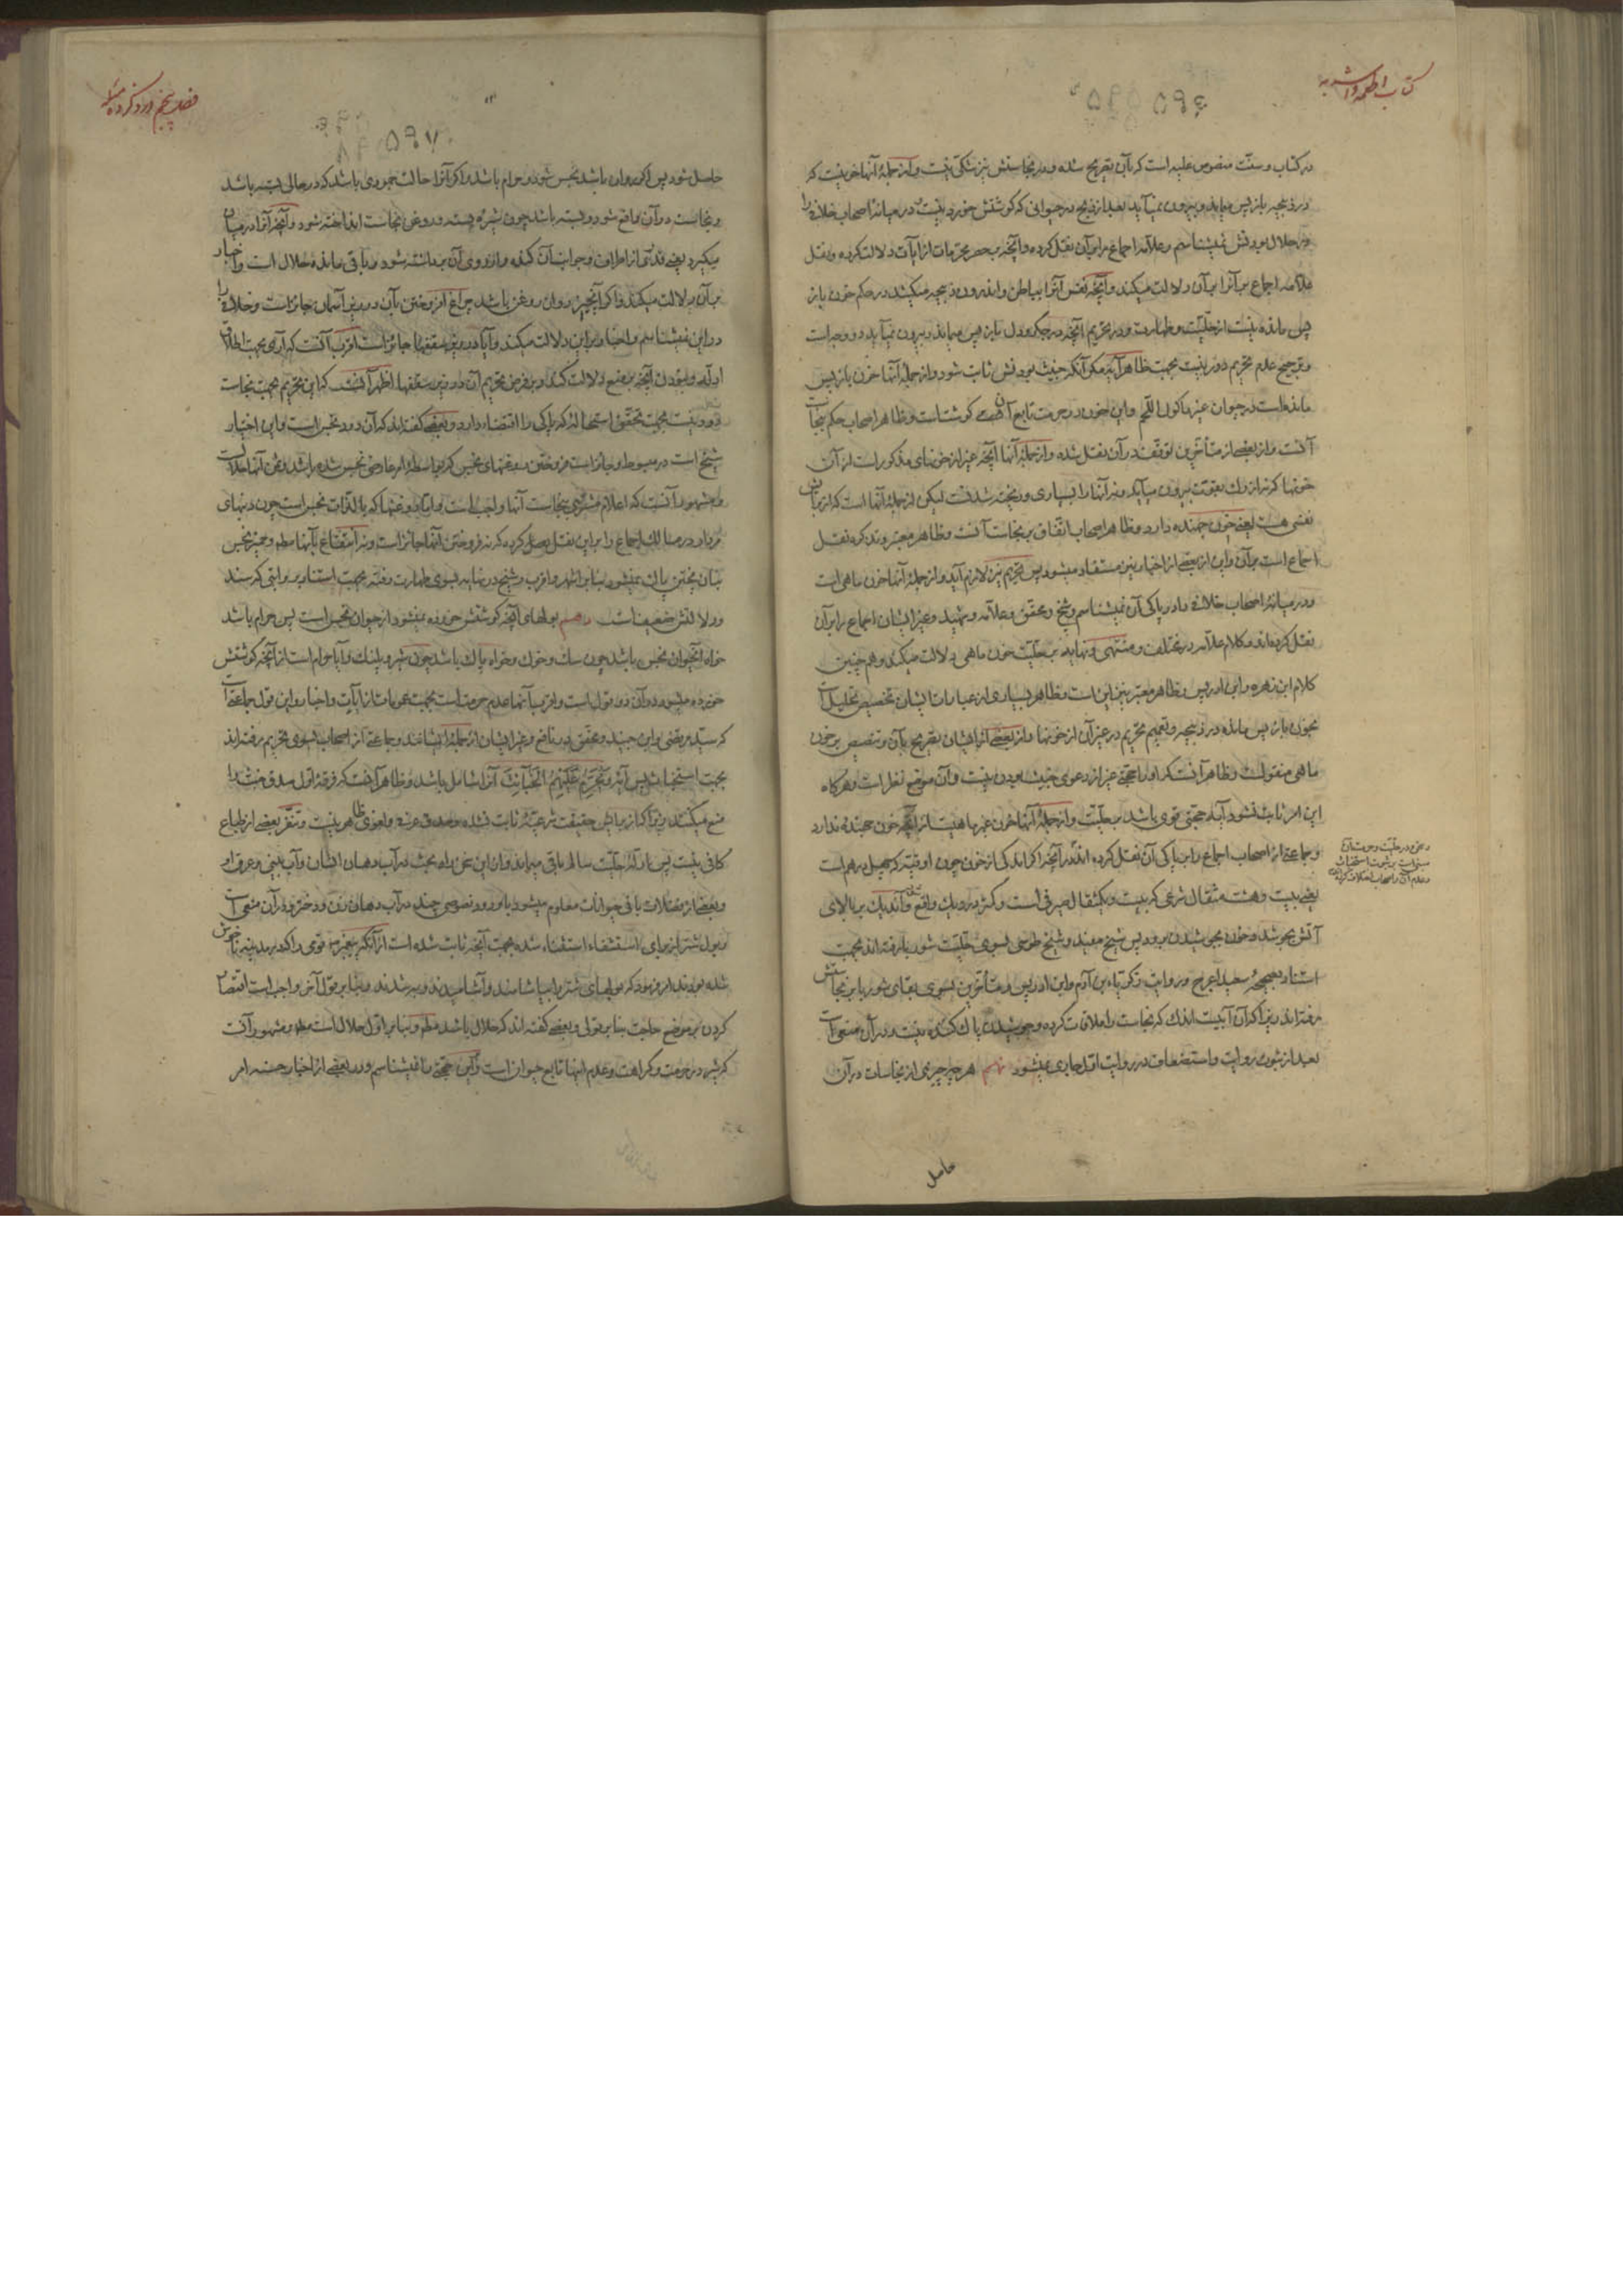 کتاب اطعمه و اشربه
در کتاب و سنّت منصوص علیه است که بآن تصریح شده و در نجاستش نیز شکی نیست و از جملهٔ آنها خونیست که
در ذبیحه باز پس میماند و بیرون نمیآید بعد از ذبح در حیوانی که گوشتش خورد نیست در میانهٔ اصحاب خلافی را
در حلال بودنش نمیشناسم و علامه اجماع را بر آن نقل کرده و آنچه بحصر محرمات از آیات دلالت کرده و نقل
علامه اجماع بر آنرا بر آن دلالت میکند و آنچه نفس آنرا بباطن و اندرون ذبیحه میکشد در حکم خون باز
پس مانده نیست از حلّیت و طهارت و در تحریم آنچه در جگر و دل باز پس میماند و بیرون نمیآید دو وجه است
و ترجیح عدم تحریم دور نیست بجهت ظاهر آیه مگر آنکه خبیث بودنش ثابت شود و از جملهٔ آنها خون باز پس
مانده است در حیوان غیر ماکول اللّحم و این خون در حرمت تابع آن گوشتست و ظاهر اصحاب حکم بنجاست
آنست و از بعضی از متأخرین توقّف در آن نقل شده و از جملهٔ آنها آنچه غیر از خونهای مذکور است از آن
خونها که نه از رگ بقوت بیرون میآید و نه آنها را بسیاری و ریخته شدنست لیکن از جملهٔ آنها است که از برای
نفسی هست یعنی خون جهنده دارد و ظاهر اصحاب اتّفاق بر نجاست آنست و ظاهر معتبر و تذکره نقل
اجماع است بر آن و این از بعضی از اخبار نیز مستفاد میشود پس تحریم نیز لازم آید و از جملهٔ آنها خون ماهی است
و در میانهٔ اصحاب خلافی را در پاکی آن نمیشناسم و شیخ و محقق و علامه و شهید و غیر ایشان اجماع را بر آن
نقل کرده‌اند و کلام علامه در مختلف و منتهی و نهایه بر حلّیت خون ماهی دلالت میکند و هم چنین
کلام ابن زهره و ابن ادریس و ظاهر معتبر نیز این است و ظاهر بسیاری از عبارات ایشان تخصیص تحلیل است
بخون باز پس مانده در ذبیحه و تعمیم تحریم در غیر آن از خونها و از بعضی از ایشان تصریح بآن و تنصیص بر خون
ماهی منقولست و ظاهر آنست که او را حجّتی غیر از دعوی خبیث بودن نیست و آن موضع نظر است و هرگاه
این امر ثابت نشود آیه حجّتی قوی باشد بر حلّیت و از جملهٔ آنها خون غیر ماهیست از آنچه خون جهنده ندارد
و جماعتی از اصحاب اجماع را بر پاکی آن نقل کرده اند و آنچه اگر اندکی از خون چون اوقیه که چهل درهم است
یعنی بیست و هشت مثقال شرعی که بیست و یکمثقال صیرفی است و کمتر در دیگ واقع شود و آندیگ بر بالای
آتش بجوشد و خون بجوشیدن برود پس شیخ مفید و شیخ طوسی بسوی حلّیت شوربا رفته اند بجهت
استناد بصحیحهٔ سعید اعرج و روایت زکریاء بن آدم و ابن ادریس و متأخّرین بسوی بقای شوربا بر نجاستش
رفته‌اند زیرا که آن آبیست اندک که نجاست را ملاقات کرده و جوشیدن پاک کننده نیست و در آن منعی است
بعد از ثبوت روایت و استضعاف در روایت اوّل جاری میشود نهم هر چه چیزی از نجاسات در آن
حاصل
فصل پنجم در ذکر
حاصل شود پس اگر روان باشد نجس شود و حرام باشد و اگر آنرا حالت جمودی باشد که در حالی بسته باشد
و نجاست در آن واقع شود و بسته باشد چون شیرهٔ بسته و روغن نجاست انداخته شود و آنچه آنرا در میان
میگیرد یعنی قدری از اطراف و جوانب آن کنده و از روی آن برداشته شود و باقی مانده حلال است و اخبار
بر آن دلالت میکند و اگر آنچیز روان روغن باشد چراغ افروختن بآن در زیر آسمان جائز است و خلافی را
در این نمیشناسم و اخبار بر این دلالت میکند و آیا در زیر سقفها جائز است اقرب آنست که آری بجهت اطلاق
ادلّه و نبودن آنچه بر منع دلالت کند و بر فرض تحریم آن در زیر سقفها اظهر آنست که این تحریم بجهت نجاست
دود نیست بجهت تحقّق استحاله که پاکی را اقتضاء دارد و بعضی گفته‌اند که آن دود نجس است و این اختیار
شیخ است در مبسوط و جائز است فروختن روغنهای نجس که بواسطهٔ امر عارضی نجس شده باشد و ثمن آنها حلال است
و مشهور آنست که اعلام مشتری بنجاست آنها واجب است و اما روغنها که بالذّات نجس است چون دنبهای
مردار در مسالک اجماع را بر این نقل کرده که نه فروختن آنها جائز است و نه انتفاع بآنها مطم و خمیر نجس
بنان پختن پاک نمیشود بنا بر اشهر و اقرب و شیخ در نهایه بسوی طهارت رفته بجهت استناد بروایتی که سند
و دلالتش ضعیف است دهم بولهای آنچه گوشتش خورده نمیشود از حیوان نجس است پس حرام باشد
خواه آنحیوان نجس باشد چون سگ و خوک و خواه پاک باشد چون شیر و پلنگ و آیا حرام است از آنچه گوشتش
خورده میشود در آن دو قول است و اقرب آنها عدم حرمت است بجهت عمومات از آیات و اخبار و این قول جماعتی است
که سیّد مرتضی و ابن جنید و محقق در نافع و غیر ایشان از جملهٔ ایشانند و جماعتی از اصحاب بسوی تحریم رفته‌اند
بجهت استخباث پس آیهٔ و یُحَرِّمُ عَلَیْهِمُ الْخَبَائِثَ آنرا شامل باشد و ظاهر آنست که فرقهٔ اوّل صدق خبث را
منع میکنند زیرا که از برایش حقیقت شرعیّه ثابت نشده و صدق عرفی و لغوی ظاهر نیست و تنفّر بعضی از طباع
کافی نیست پس ادلّهٔ حلّیت سالم باقی میماند و از این نحن راه بحث در آب دهان انسان و آب بینی و عرق او
و بعضی از فضلات باقی حیوانات معلوم میشود با ورود نصوصی چند در آب دهان زن و دختر و در آن منعی است
و بول شتر از برای استشفاء استثناء شده بجهت آنچه ثابت شده است از آنکه پیغمبر ص قومی را که در مدینه ناخوش
شده بودند امر فرمود که بولهای شتر را بیاشامند و آشامیدند و به شدند و بنا بر قول آخر واجب است اقتصار
کردن بر موضع حاجت بنا بر قولی و بعضی گفته اند که حلال باشد مطم و بنا بر اوّل حلال است مطم و مشهور آنست
که شیر در حرمت و کراهت و عدم آنها تابع حیوان است و این حجّتی را نمیشناسم و در بعضی از اخبار حسنه امر